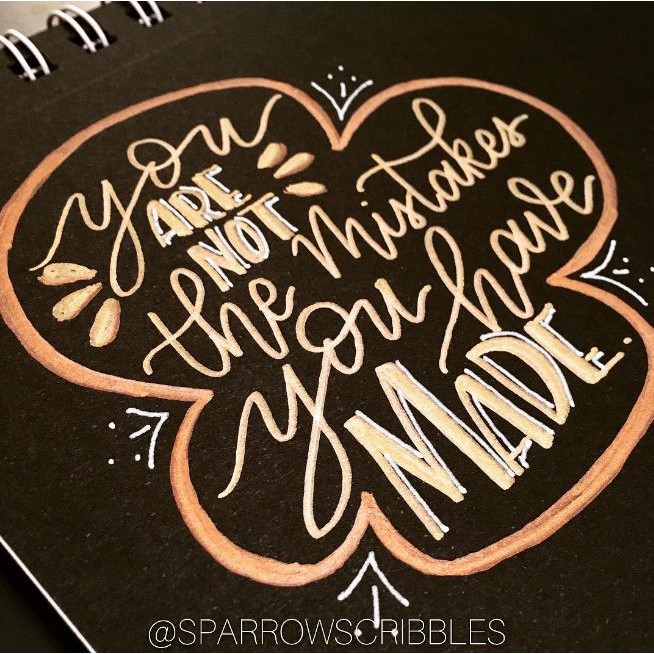 you
ARE
NOT
the mistakes
you have
MADE.
@SPARROWSCRIBBLES